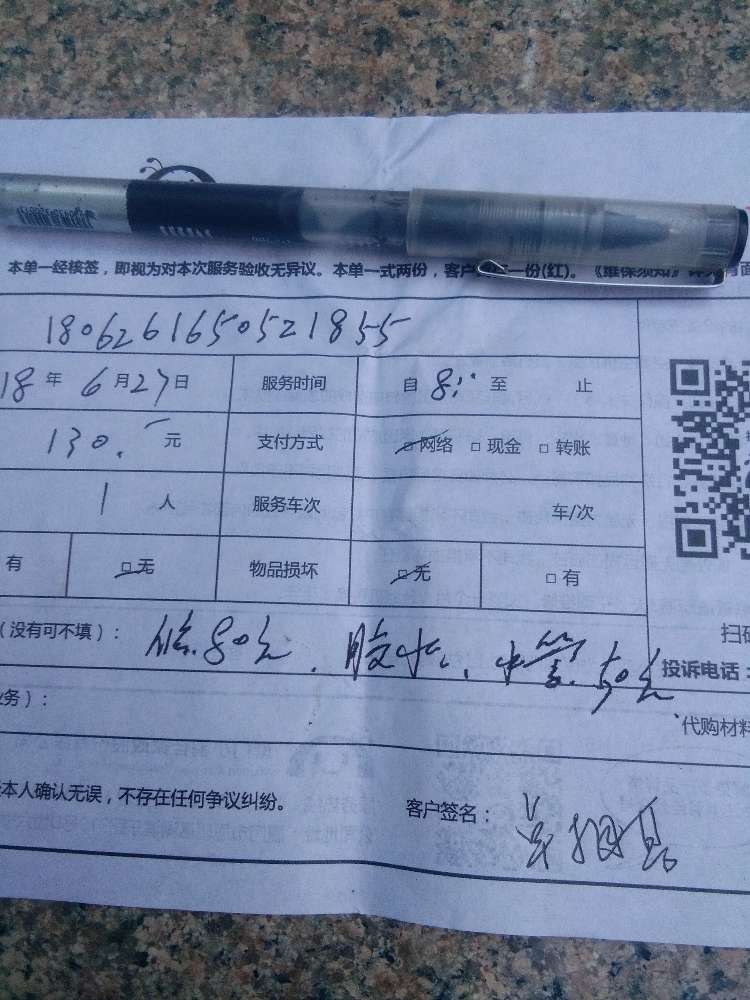 本单一经核签，即视为对本次服务验收无异议。本单一式两份，客户 一份(红)。《维保须知》详见 面
180626165052185​5
18 年 6 月 27 日 服务时间 自 8: 至 止
130. 元 支付方式 □网络 □现金 □转账
1 人 服务车次 车/次
有 □无 物品损坏 □无 □有
扫码
（没有可不填）： 80元、胶水、水管 50元
投诉电话：
业务）：
代购材料
本人确认无误，不存在任何争议纠纷。
客户签名：